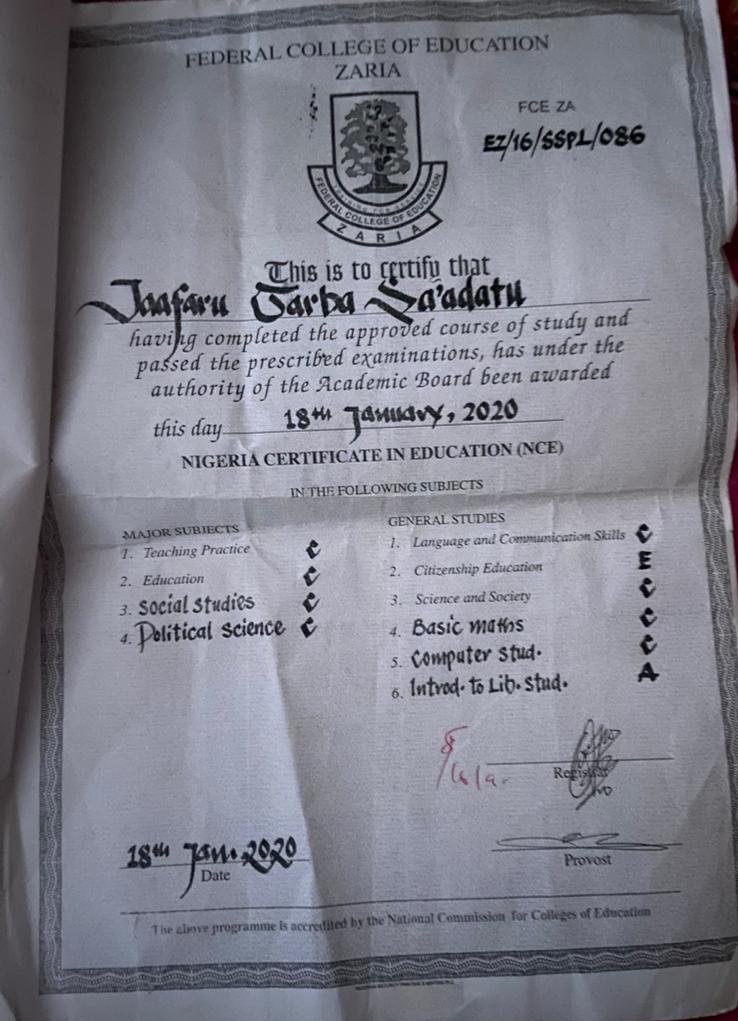 FEDERAL COLLEGE OF EDUCATION
ZARIA
FCE ZA
EZ/16/SSPL/086
FEDERAL COLLEGE OF EDUCATION
ZARIA
This is to certify that
Jaafaru Garba Sa'adatu
having completed the approved course of study and
passed the prescribed examinations, has under the
authority of the Academic Board been awarded
this day 18th January, 2020
NIGERIA CERTIFICATE IN EDUCATION (NCE)
IN THE FOLLOWING SUBJECTS
MAJOR SUBJECTS
1. Teaching Practice C
2. Education C
3. Social Studies C
4. Political Science C
GENERAL STUDIES
1. Language and Communication Skills C
2. Citizenship Education E
3. Science and Society C
4. Basic maths C
5. Computer Stud. C
6. Introd. to Lib. Stud. A
Registrar
18th Jan. 2020
Date
Provost
The above programme is accredited by the National Commission for Colleges of Education